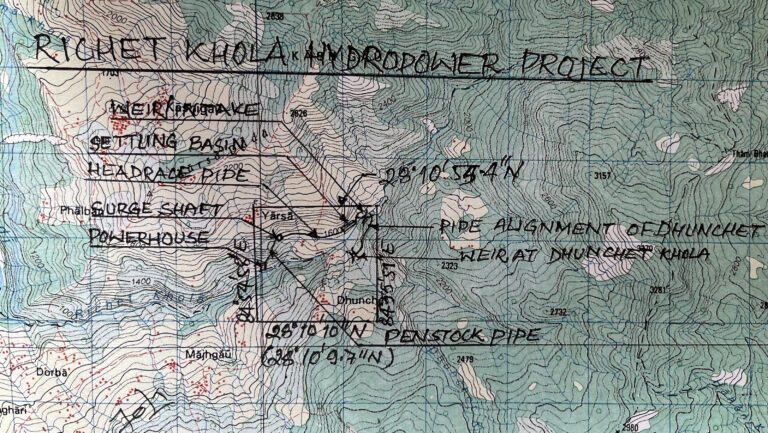 2638
RICHET KHOLA HYDROPOWER PROJECT
1703
WEIR INTAKE
2626
2400
SETTLING BASIN
Thāni Bha
HEADRACE PIPE
2200
28°10'54.4"N
3157
SURGE SHAFT
Phālbo
Yārsā
1600
PIPE ALIGNMENT OF DHUNCHET
POWERHOUSE
WEIR AT DHUNCHET KHOLA
2323
1400
3281
2800
Richet Khola
Dhunche
2732
28°10'10"N
PENSTOCK PIPE
(28°10'9.7"N)
Mājhgāu
2479
Dorba
ghāri
2980